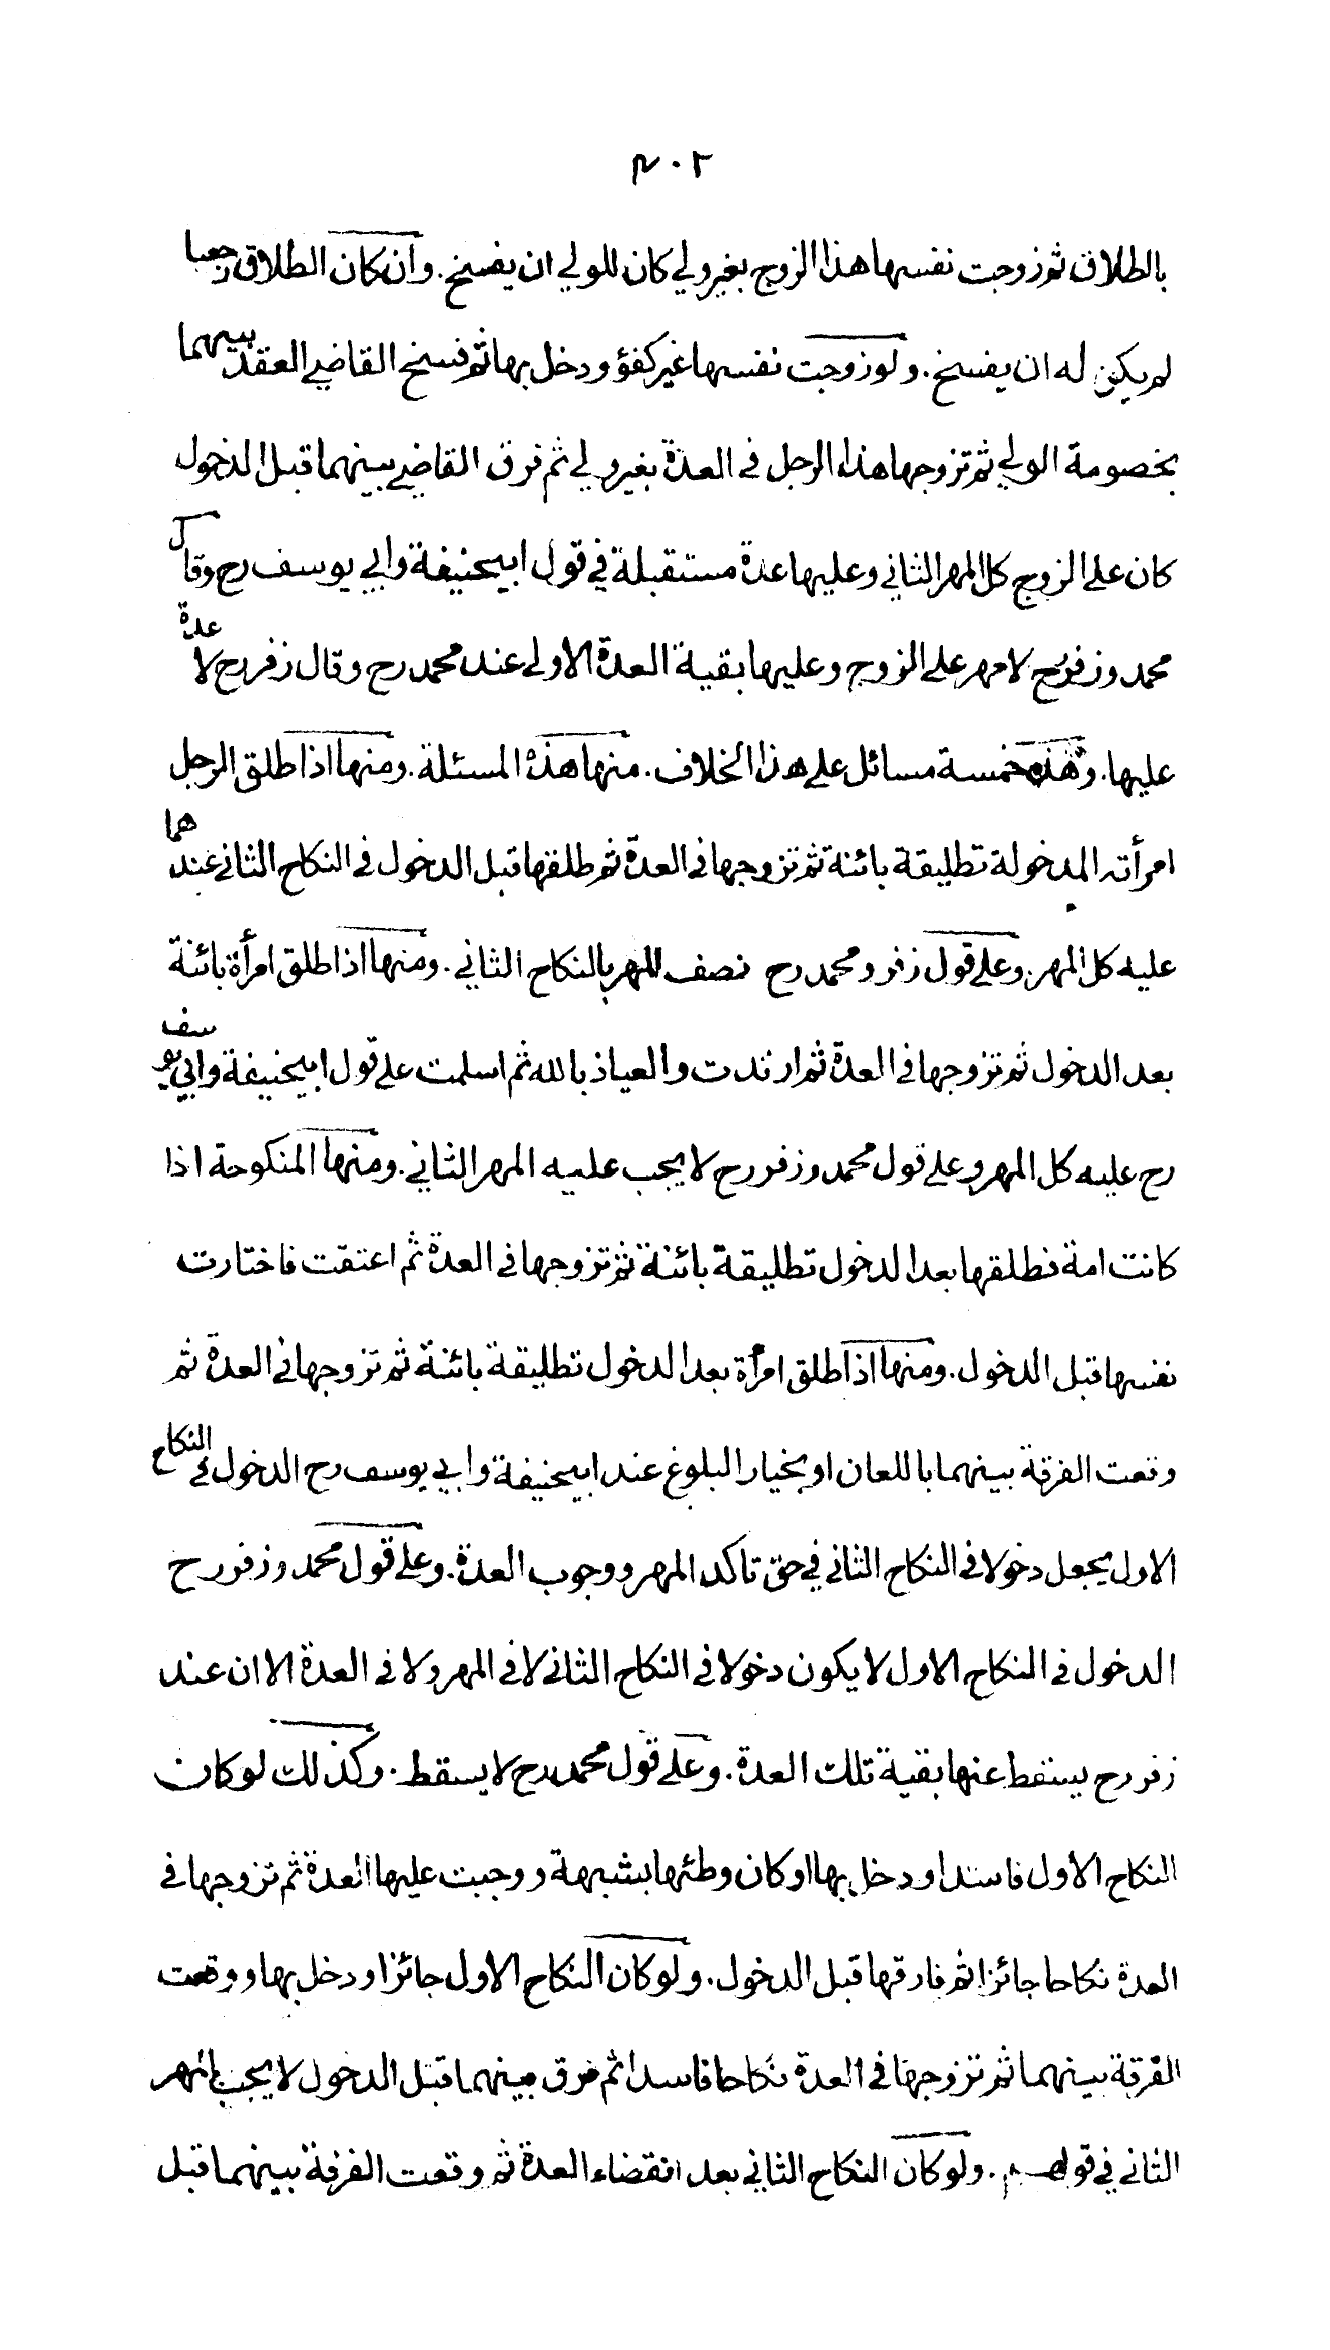 ٤٠٢
بالطلاق ثم زوجت نفسها هذا الزوج بغير ولي كان للولي ان يفسخ. وان كان الطلاق رجعيا
لم يكن له ان يفسخ. ولو زوجت نفسها غير كفؤ ودخل بها ثم فسخ القاضي العقد بينهما
بخصومة الولي ثم تزوجها هذا الرجل في العدة بغير ولي ثم فرق القاضي بينهما قبل الدخول
كان على الزوج كل المهر الثاني وعليها عدة مستقبلة في قول ابيحنيفة وابي يوسف رح وقال
محمد وزفر رح لا مهر على الزوج وعليها بقية العدة الاولى عند محمد رح وقال زفر رح لا عدة
عليها. وهذه خمسة مسائل على هذا الخلاف. منها هذه المسئلة. ومنها اذا طلق الرجل
امرأته المدخولة تطليقة بائنة ثم تزوجها في العدة ثم طلقها قبل الدخول في النكاح الثاني عندهما
عليه كل المهر. وعلى قول زفر ومحمد رح نصف المهر بالنكاح الثاني. ومنها اذا طلق امرأة بائنة
بعد الدخول ثم تزوجها في العدة ثم ارتدت والعياذ بالله ثم اسلمت على قول ابيحنيفة وابي يوسف
رح عليه كل المهر وعلى قول محمد وزفر رح لا يجب عليه المهر الثاني. ومنها المنكوحة اذا
كانت امة فطلقها بعد الدخول تطليقة بائنة ثم تزوجها في العدة ثم اعتقت فاختارت
نفسها قبل الدخول. ومنها اذا طلق امرأة بعد الدخول تطليقة بائنة ثم تزوجها في العدة ثم
وقعت الفرقة بينهما باللعان او بخيار البلوغ عند ابيحنيفة وابي يوسف رح الدخول في النكاح
الاول يجعل دخولا في النكاح الثاني في حق تاكد المهر ووجوب العدة. وعلى قول محمد وزفر رح
الدخول في النكاح الاول لا يكون دخولا في النكاح الثاني لا في المهر ولا في العدة الا ان عند
زفر رح يسقط عنها بقية تلك العدة. وعلى قول محمد رح لا يسقط. وكذلك لو كان
النكاح الاول فاسدا ودخل بها او كان وطئها بشبهة ووجبت عليها العدة ثم تزوجها في
العدة نكاحا جائزا ثم فارقها قبل الدخول. ولو كان النكاح الاول جائزا ودخل بها ووقعت
الفرقة بينهما ثم تزوجها في العدة نكاحا فاسدا ثم فرق بينهما قبل الدخول لا يجب المهر
الثاني في قولهم. ولو كان النكاح الثاني بعد انقضاء العدة ثم وقعت الفرقة بينهما قبل